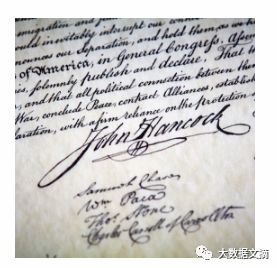 emigration and
would inevitably interrupt our
nounces our Separation, and hold them, as we h
of America, in General Congress, Assem
es, solemnly publish and declare, That th
, and that all political connection between them
War, conclude Peace, contract Alliances, establish
aration, with a firm reliance on the protection of
John Hancock
Samuel Chase
Wm Paca
Thos Stone
Charles Carroll of Carrollton
大数据文摘